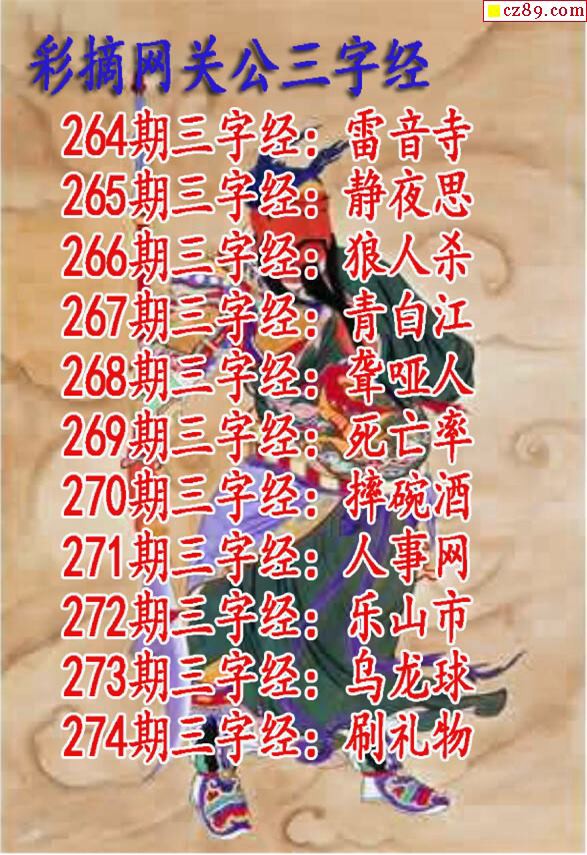 cz89.com
彩摘网关公三字经
264期三字经：雷音寺
265期三字经：静夜思
266期三字经：狼人杀
267期三字经：青白江
268期三字经：聋哑人
269期三字经：死亡率
270期三字经：摔碗酒
271期三字经：人事网
272期三字经：乐山市
273期三字经：乌龙球
274期三字经：刷礼物